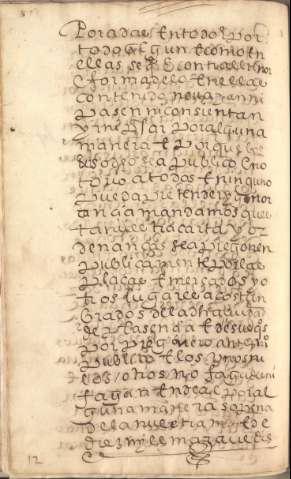 por a das E todo por
todo al gun E como En
ellas se E contra el tenor
E forma de lo En ellas
contenido no vayan ni
pasen ni consientan
yr ni pasar por alguna
manera E por que lo
suso dho sea publico E no
torio a todos E ninguno
pueda pretender ygnor
ançia mandamos que
esta nuestra carta y or
denanças sea pregonen
publica mente por las
plaças E mercados yo
tros lugares acostun
brados de la dha çiudad
de plasençia E de su
por pregonero
publico E los unos ni
los otros no fagades ni
fagan Ende al por al
guna manera so pena
de la nuestra mrd E de
diez myll marauedis
12